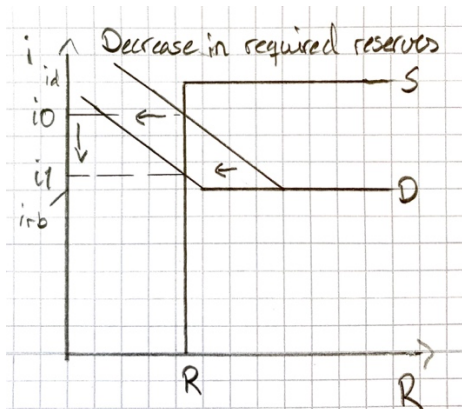 Decrease in required reserves
i
id
S
i0
i1
D
irb
R
R